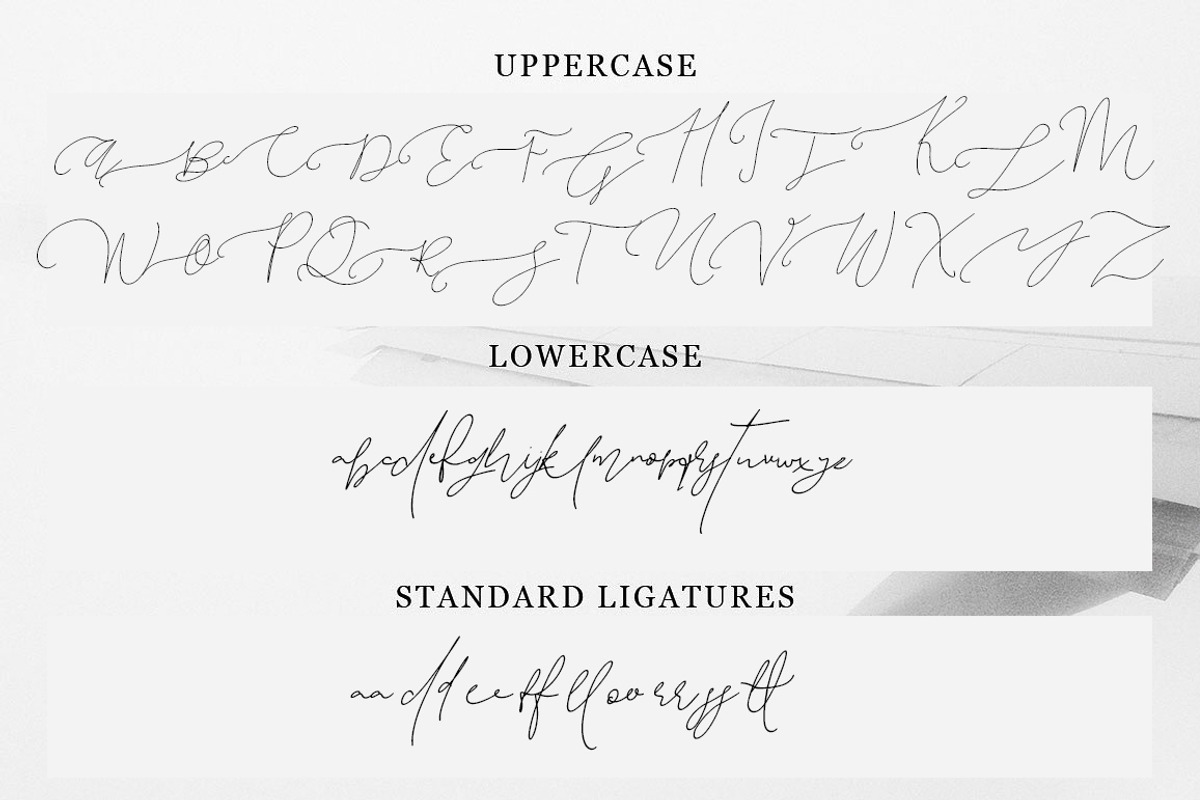 UPPERCASE
A B C D E F G H I J K L M
W O P Q R S T U V W X Y Z
LOWERCASE
abcdefghijklmnopqrstuvwxyz
STANDARD LIGATURES
aa dd ee ff ll oo rr ss tt